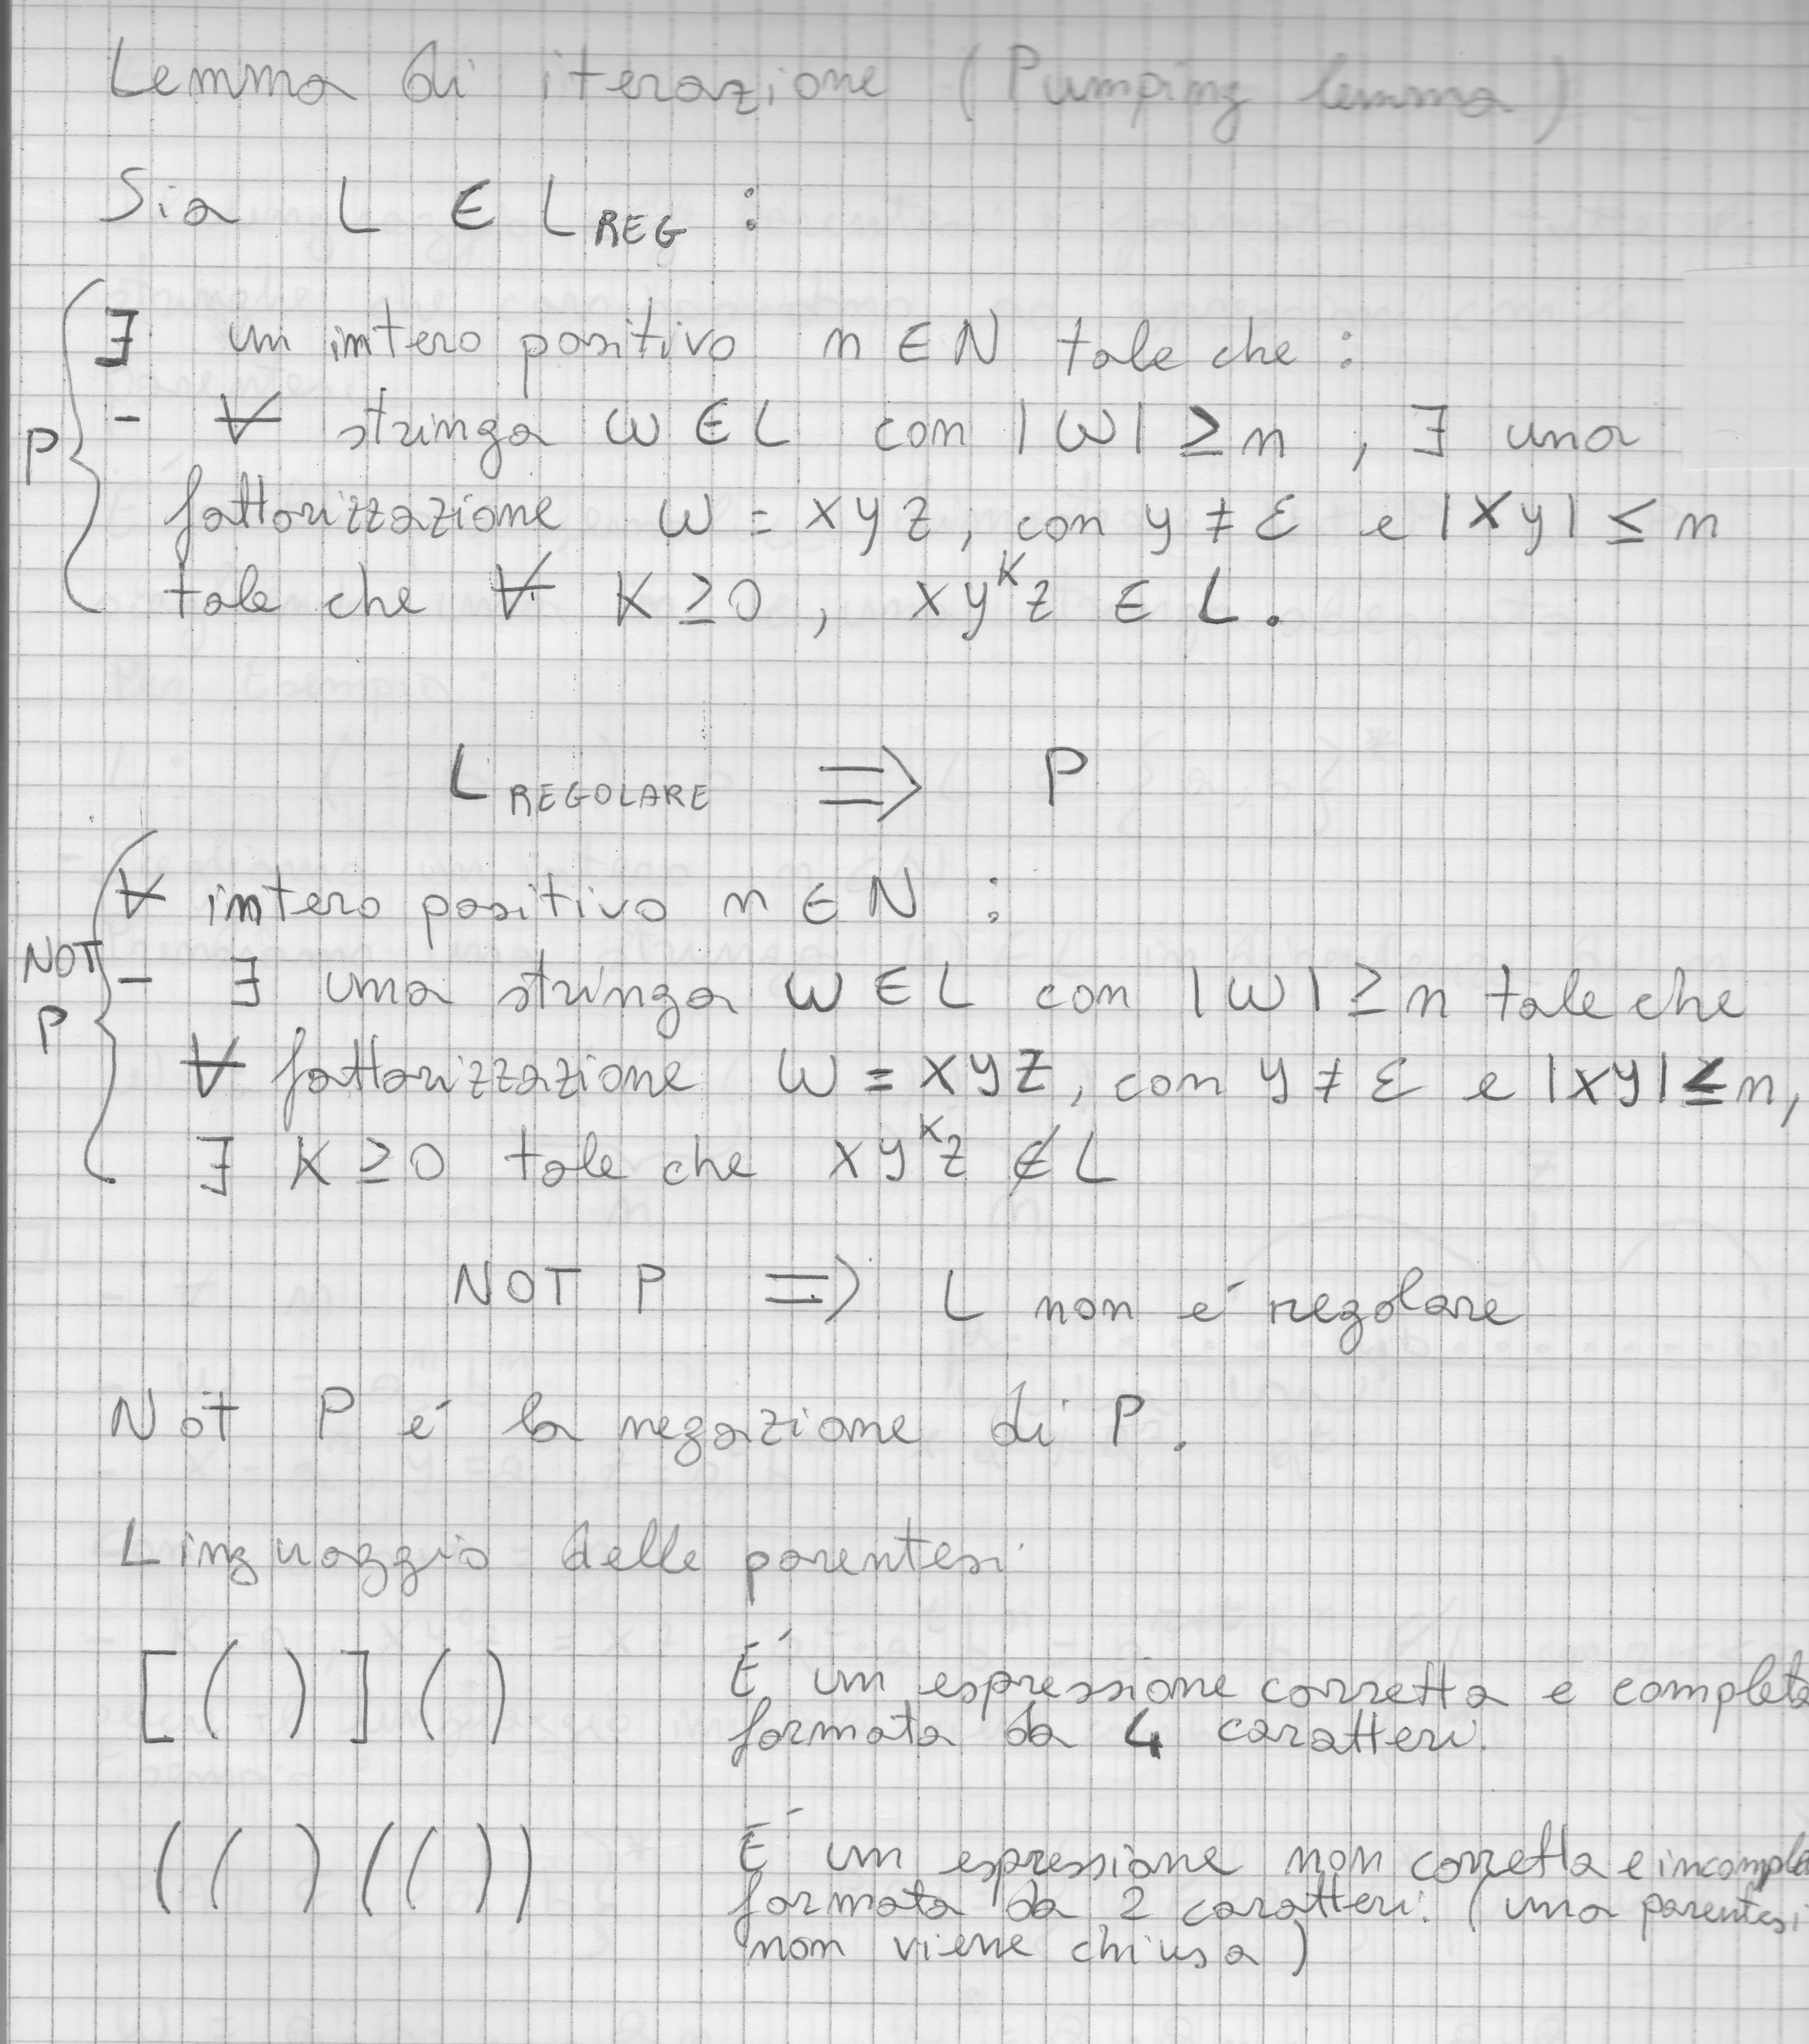 Lemma di iterazione (Pumping lemma)
Sia L ∈ L_REG :
∃ un intero positivo n ∈ N tale che :
- ∀ stringa ω ∈ L con |ω| ≥ n , ∃ una
P
fattorizzazione ω = xyz, con y ≠ ε e |xy| ≤ n
tale che ∀ K ≥ 0 , xy^K z ∈ L .
L REGOLARE ⇒ P
∀ intero positivo n ∈ N :
NOT P
- ∃ una stringa ω ∈ L con |ω| ≥ n tale che
∀ fattorizzazione ω = xyz, con y ≠ ε e |xy| ≤ n,
∃ K ≥ 0 tale che xy^K z ∉ L
NOT P ⇒ L non é regolare
Not P é la negazione di P.
Linguaggio delle parentesi
[ ( ) ] ( ) É un espressione corretta e completa
formata da 4 caratteri.
( ( ) ( ( ) ) É un espressione non corretta e incompl
formata da 2 caratteri. (una parentesi
non viene chiusa)